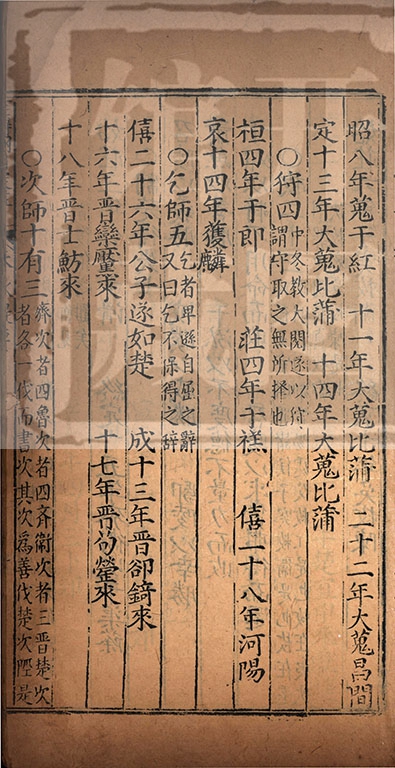 昭八年蒐于紅　十一年大蒐比蒲　二十二年大蒐昌間
定十三年大蒐比蒲　十四年大蒐比蒲
〇狩四　中冬教大閱遂以狩
謂守取之無所擇也
桓四年于郎　莊四年于禚　僖二十八年河陽
哀十四年獲麟
〇乞師五　乞者卑遜自屈之辭
又曰乞不保得之辭
僖二十六年公子遂如楚　成十三年晉郤錡來
十六年晉欒黶來　十七年晉荀罃來
十八年晉士魴來
〇次師十有三　齊次者四魯次者四齊衛次者三晉楚次
者各一伐而書次其次為善伐楚次陘是